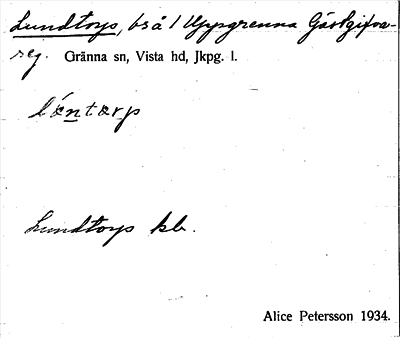 Lundtorp, bs å 1 Uppgrenna Gästgifva-
reg. Gränna sn, Vista hd, Jkpg. l.
lǿntarp
Lundtorp kb.
Alice Petersson 1934.